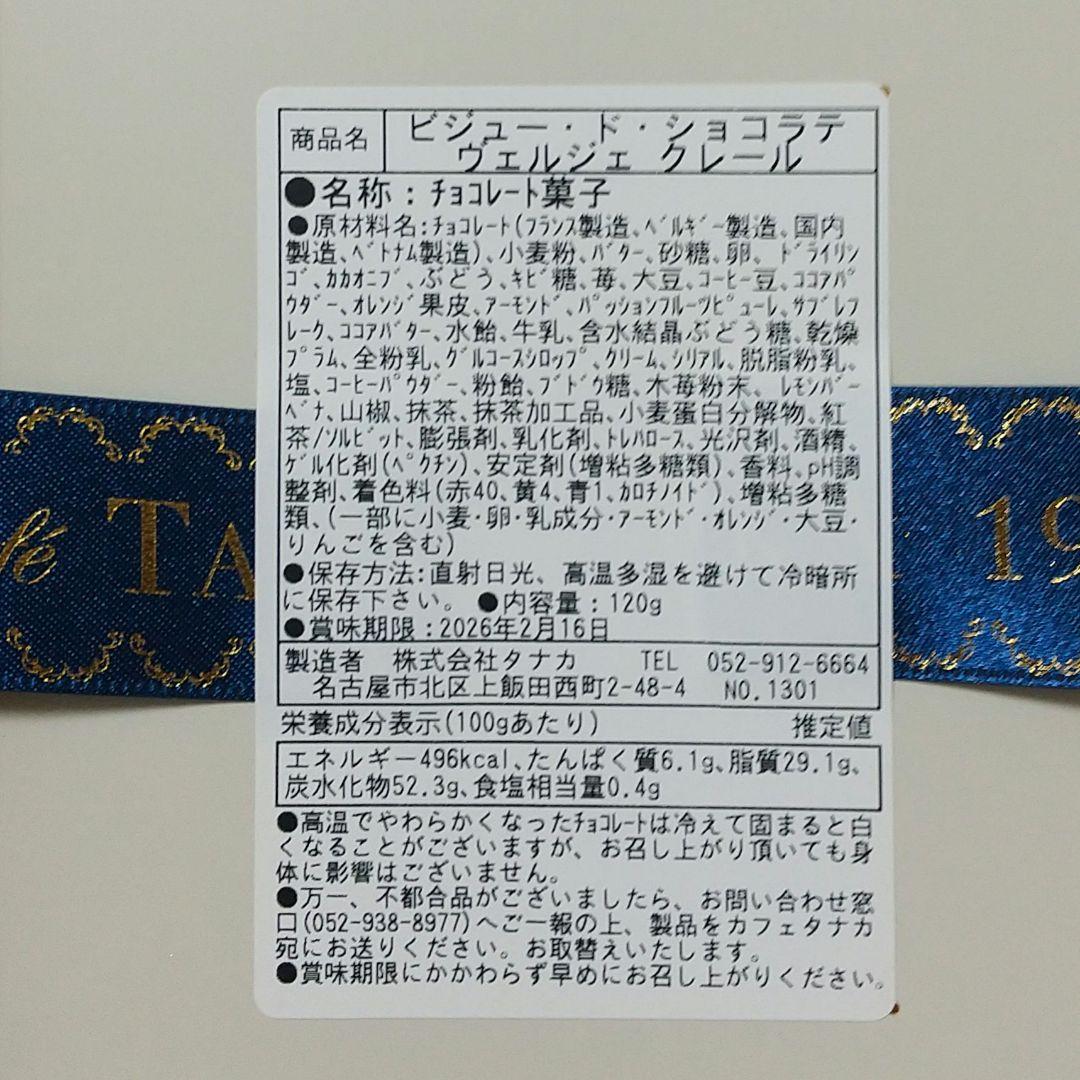 商品名
ビジュー・ド・ショコラテ
ヴェルジェ クレール
●名称：ﾁｮｺﾚｰﾄ菓子
●原材料名:ﾁｮｺﾚｰﾄ(ﾌﾗﾝｽ製造､ﾍﾞﾙｷﾞｰ製造､国内
製造､ﾍﾞﾄﾅﾑ製造)､小麦粉､ﾊﾞﾀｰ､砂糖､卵､ﾄﾞﾗｲﾘﾝ
ｺﾞ､ｶｶｵﾆﾌﾞ､ぶどう､ｷﾋﾞ糖､苺､大豆､ｺｰﾋｰ豆､ｺｺｱﾊﾟ
ｳﾀﾞｰ､ｵﾚﾝｼﾞ果皮､ｱｰﾓﾝﾄﾞ､ﾊﾟｯｼｮﾝﾌﾙｰﾂﾋﾟｭｰﾚ､ｻﾌﾞﾚﾌ
ﾚｰｸ､ｺｺｱﾊﾞﾀｰ､水飴､牛乳､含水結晶ぶどう糖､乾燥
ﾌﾟﾗﾑ､全粉乳､ｸﾞﾙｺｰｽｼﾛｯﾌﾟ､ｸﾘｰﾑ､ｼﾘｱﾙ､脱脂粉乳､
塩､ｺｰﾋｰﾊﾟｳﾀﾞｰ､粉飴､ﾌﾞﾄﾞｳ糖､木苺粉末､ﾚﾓﾝﾊﾞｰ
ﾍﾞﾅ､山椒､抹茶､抹茶加工品､小麦蛋白分解物､紅
茶/ｿﾙﾋﾞｯﾄ､膨張剤､乳化剤､ﾄﾚﾊﾛｰｽ､光沢剤､酒精､
ｹﾞﾙ化剤(ﾍﾟｸﾁﾝ)､安定剤(増粘多糖類)､香料､pH調
整剤､着色料(赤40､黄4､青1､ｶﾛﾁﾉｲﾄﾞ)､増粘多糖
類､(一部に小麦･卵･乳成分･ｱｰﾓﾝﾄﾞ･ｵﾚﾝｼﾞ･大豆･
りんごを含む)
●保存方法:直射日光、高温多湿を避けて冷暗所
に保存下さい。 ●内容量：120g
●賞味期限：2026年2月16日
fé TA 19
製造者 株式会社タナカ TEL 052-912-6664
名古屋市北区上飯田西町2-48-4 NO.1301
栄養成分表示(100gあたり) 推定値
エネルギー496kcal､たんぱく質6.1g､脂質29.1g､
炭水化物52.3g､食塩相当量0.4g
●高温でやわらかくなったﾁｮｺﾚｰﾄは冷えて固まると白
くなることがございますが、お召し上がり頂いても身
体に影響はございません。
●万一、不都合品がございましたら、お問い合わせ窓
口(052-938-8977)へご一報の上、製品をカフェタナカ
宛にお送りください。お取替えいたします。
●賞味期限にかかわらず早めにお召し上がりください。